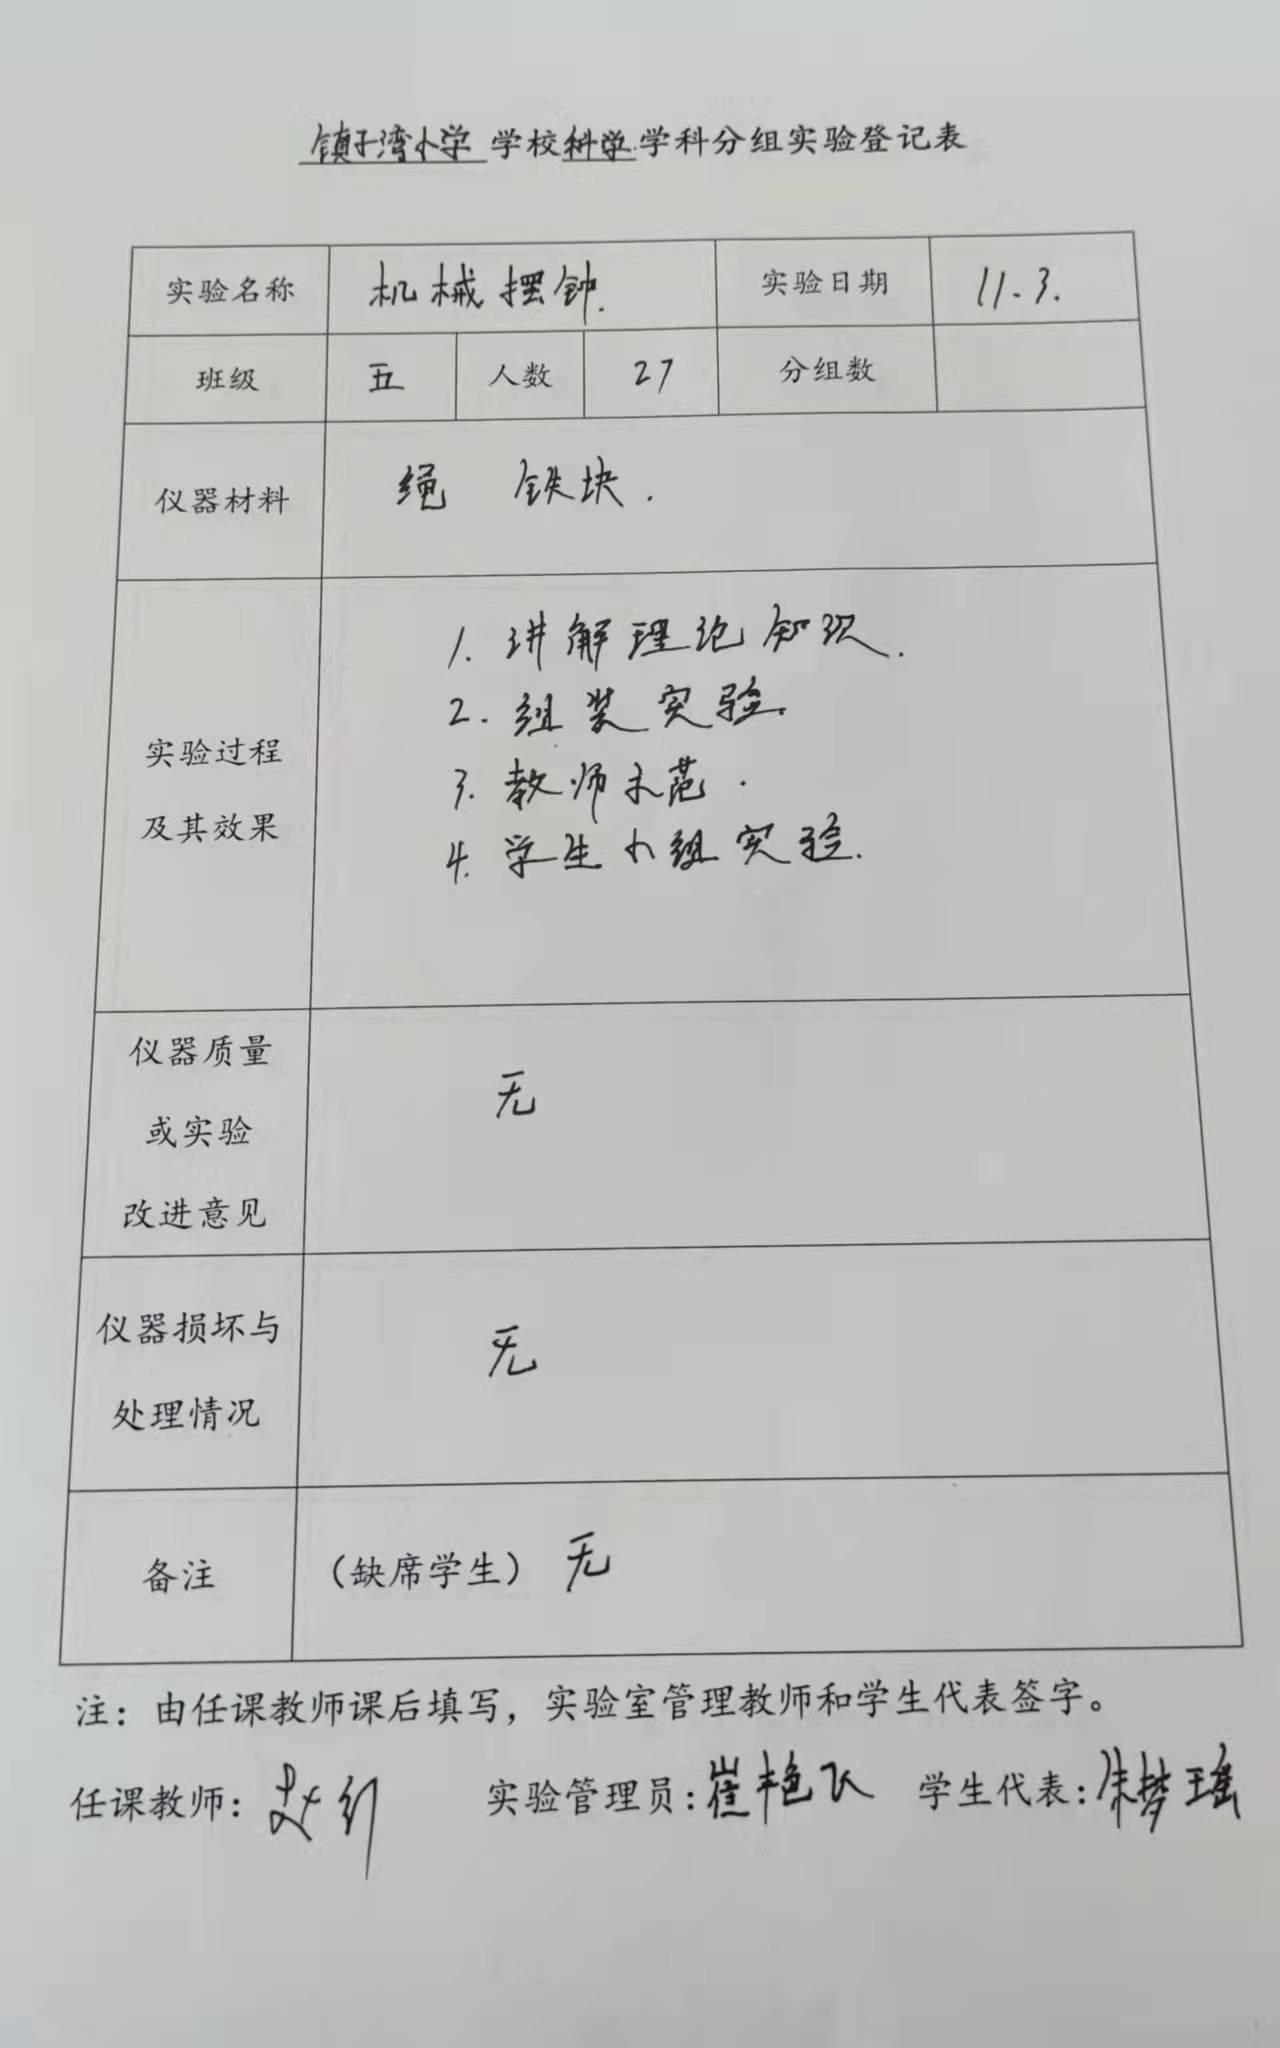 镇子湾小学 学校科学学科分组实验登记表
实验名称 机械摆钟. 实验日期 11.3.
班级 五 人数 27 分组数
仪器材料 绳 铁块.
实验过程
及其效果
1. 讲解理论知识.
2. 组装实验.
3. 教师示范.
4. 学生小组实验.
仪器质量
或实验
改进意见
无
仪器损坏与
处理情况
无
备注 (缺席学生) 无
注：由任课教师课后填写，实验室管理教师和学生代表签字。
任课教师： 实验管理员：崔艳飞 学生代表：朱梦瑶